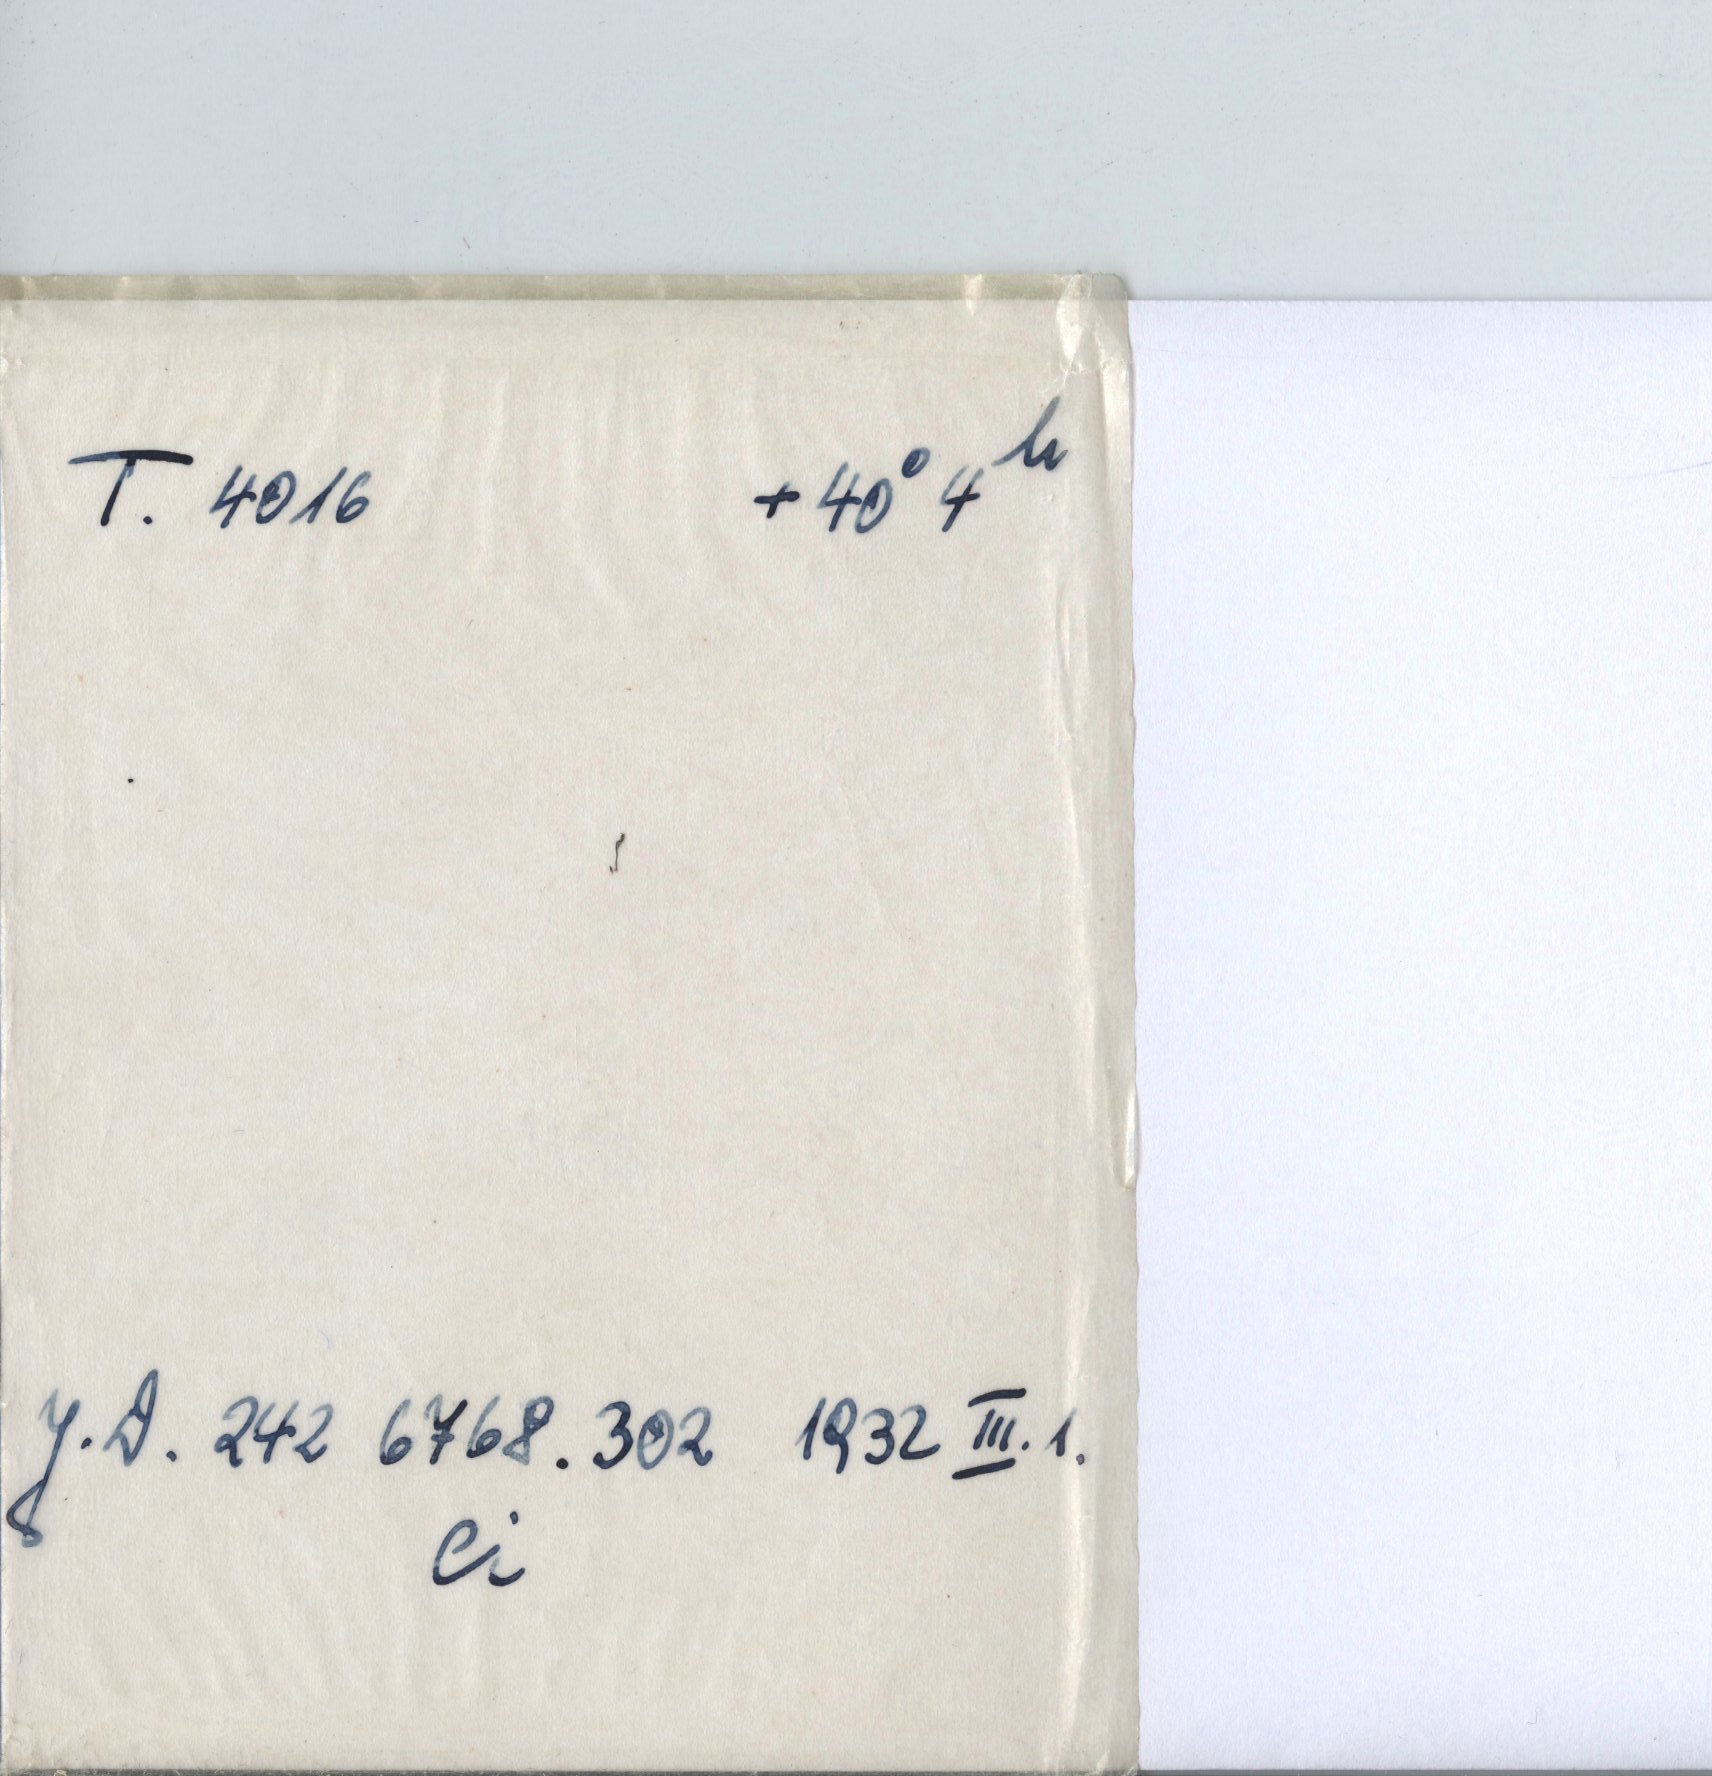 T. 4016 +40° 4ʰ
J.D. 242 6768.302 1932 III. 1.
Ci